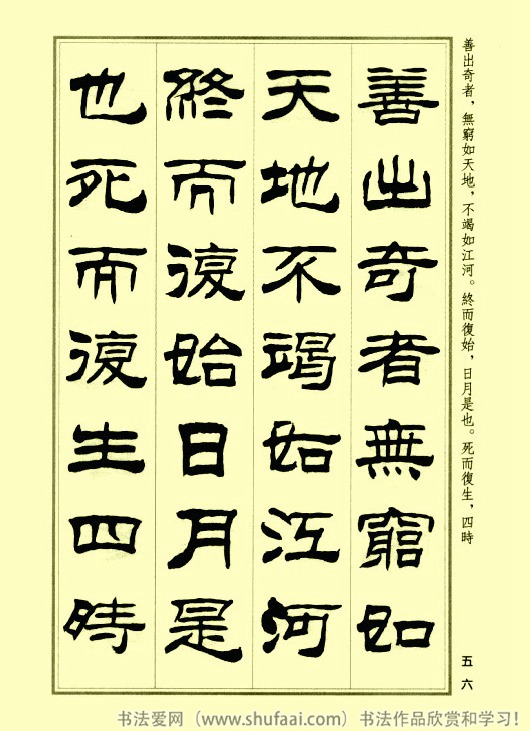 善出奇者，無窮如天地，不竭如江河。終而復始，日月是也。死而復生，四時
善出奇者無窮如
天地不竭如江河
終而復始日月是
也死而復生四時
五六
书法爱网（www.shufaai.com）书法作品欣赏和学习！